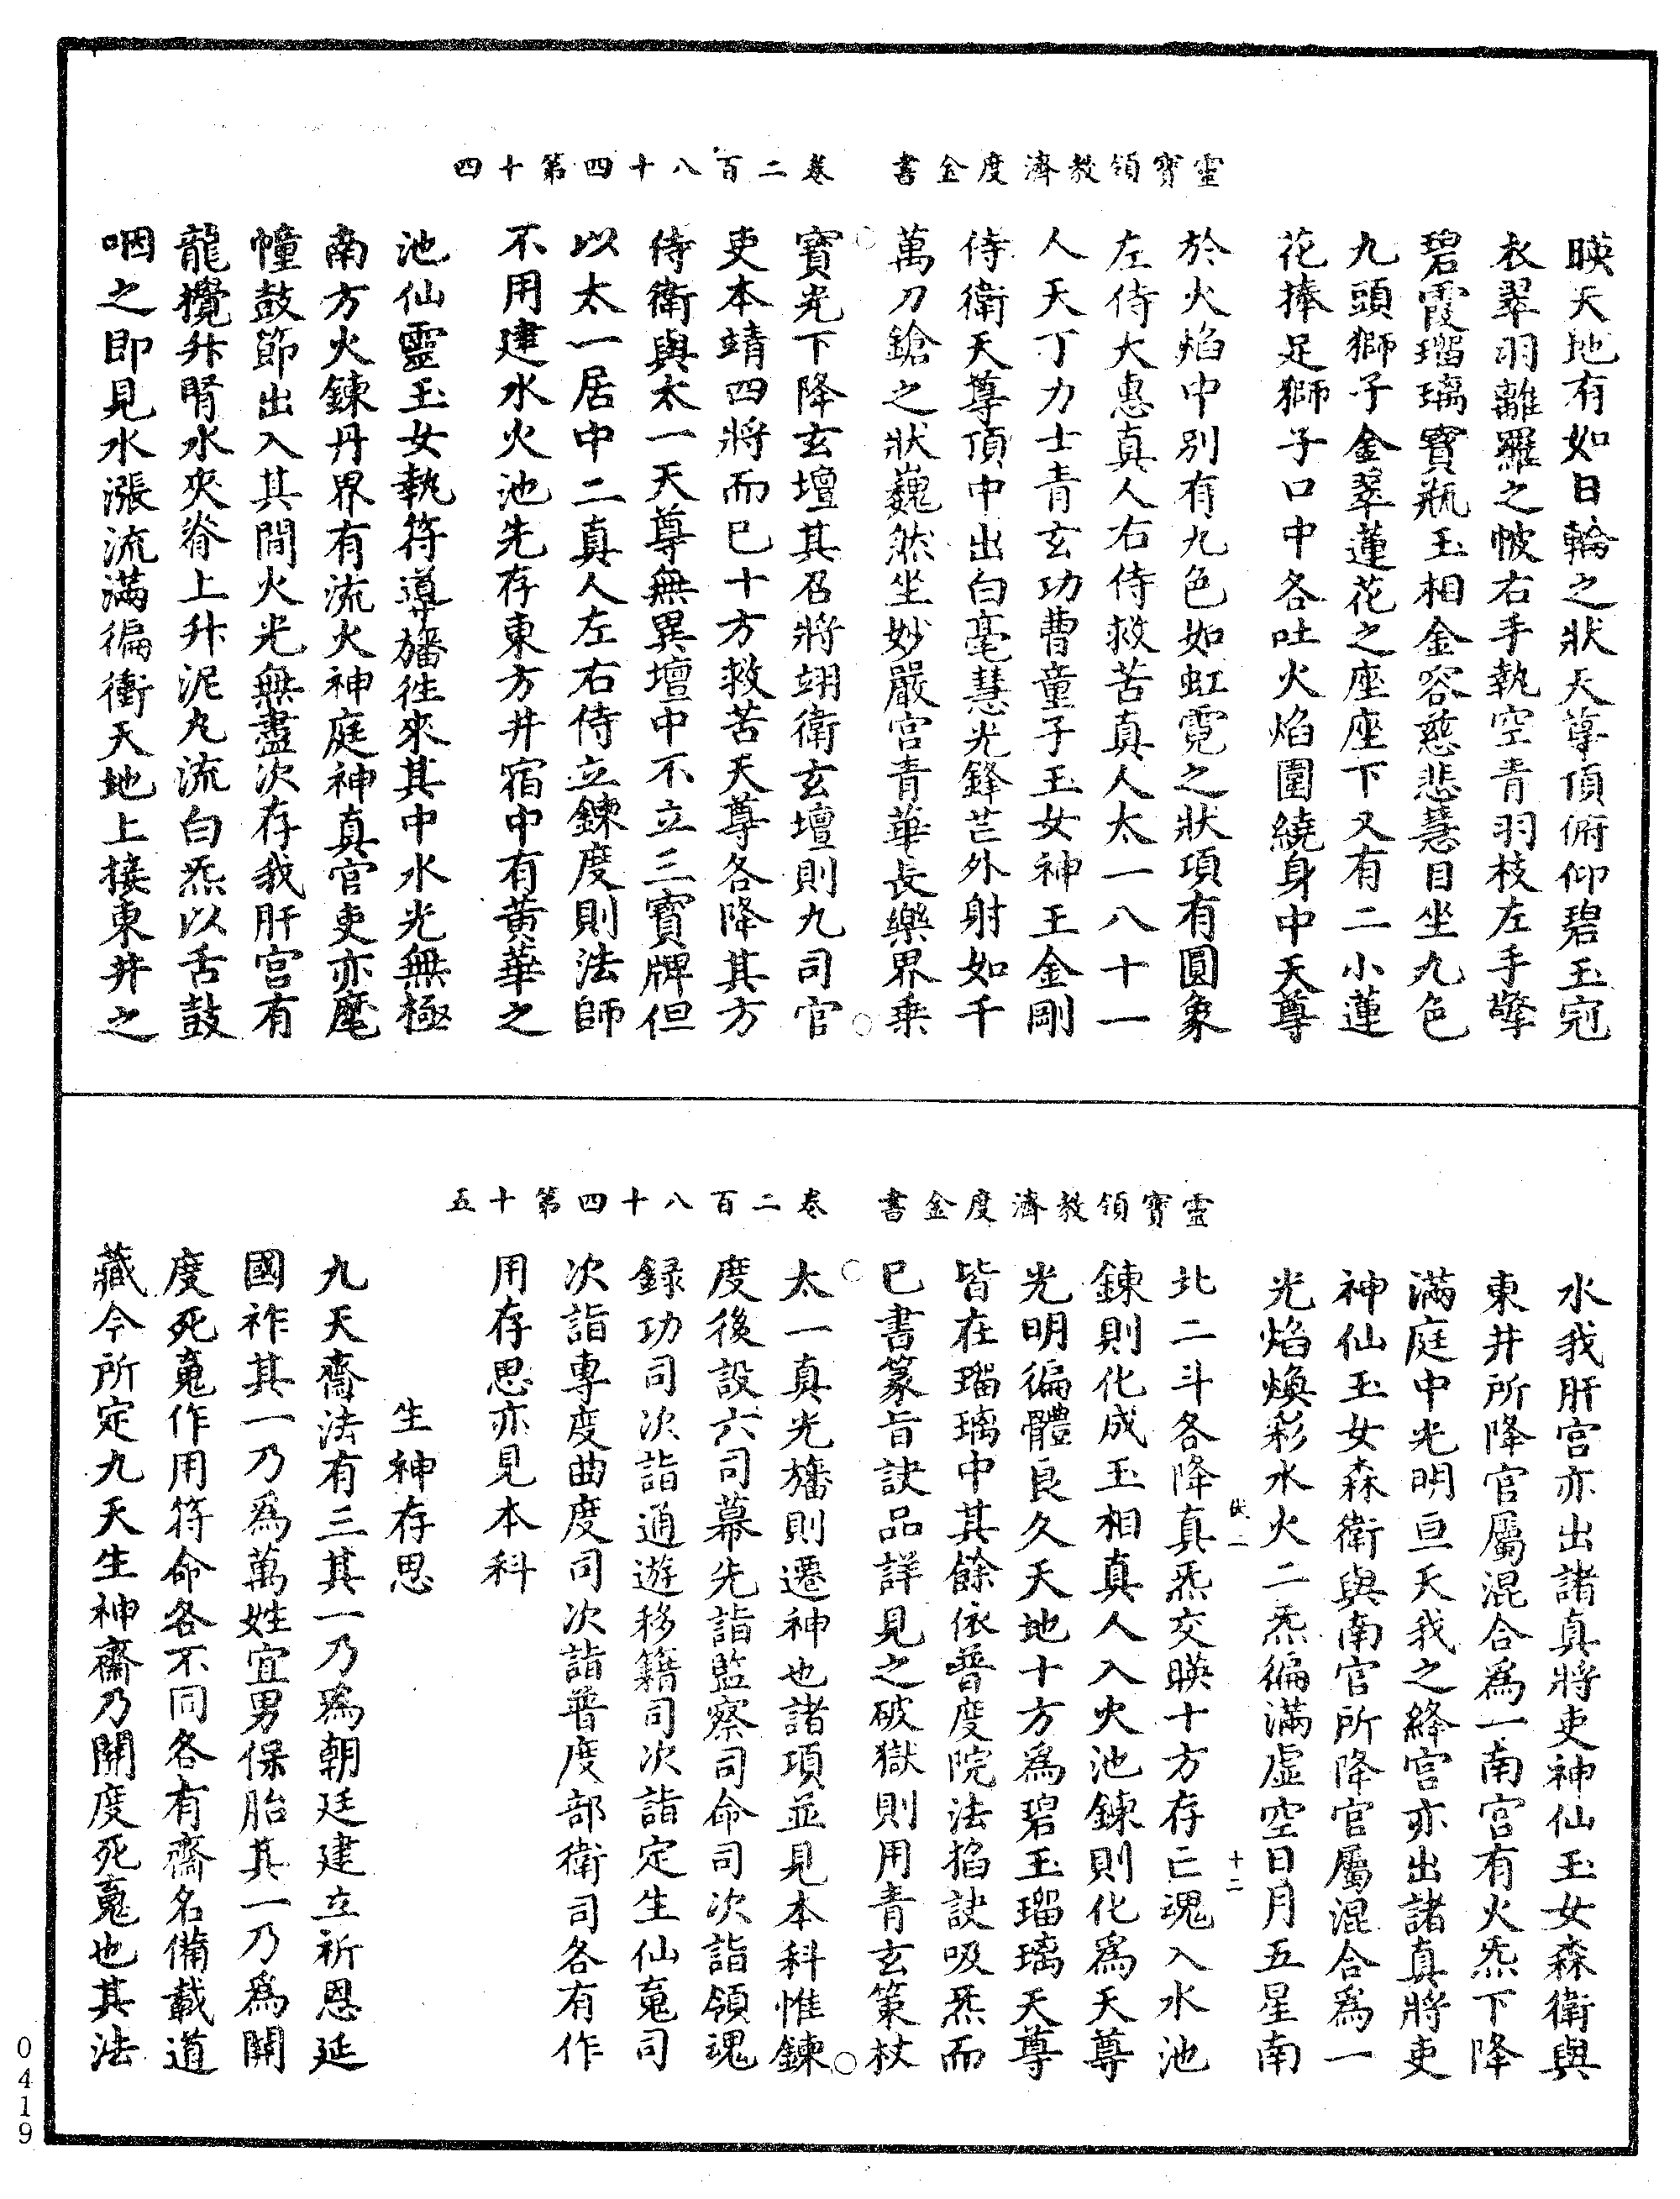 靈寶領教濟度金書 卷二百八十四第十四
暎天地有如日輪之狀天尊頂俯仰碧玉冠
衣翠羽離羅之帔右手執空青羽枝左手擎
碧霞瑠璃寶瓶玉相金容慈悲慧目坐九色
九頭獅子金翠蓮花之座座下又有二小蓮
花捧足獅子口中各吐火焰圍繞身中天尊
於火焰中別有九色如虹霓之狀項有圓象
左侍大惠真人右侍救苦真人太一八十一
人天丁力士青玄功曹童子玉女神王金剛
侍衛天尊頂中出白毫慧光鋒芒外射如千
萬刀鎗之狀巍然坐妙嚴宮青華長樂界乗
寶光下降玄壇其召將翊衛玄壇則九司官
吏本靖四將而巳十方救苦天尊各降其方
侍衛與太一天尊無異壇中不立三寶牌但
以太一居中二真人左右侍立鍊度則法師
不用建水火池先存東方井宿中有黃華之
池仙靈玉女執符導旛徃來其中水光無極
南方火鍊丹界有流火神庭神真官吏亦麾
幢鼓節出入其間火光無盡次存我肝宮有
龍攪升腎水夾脊上升泥丸流白炁以舌鼓
咽之即見水漲流滿徧衝天地上接東井之
靈寶領教濟度金書 卷二百八十四第十五
水我肝宮亦出諸真將吏神仙玉女森衛與
東井所降官屬混合爲一南宮有火炁下降
滿庭中光明亘天我之絳宮亦出諸真將吏
神仙玉女森衛與南官所降官屬混合爲一
光焰煥彩水火二炁徧滿虛空日月五星南
北二斗各降真炁交暎十方存亡魂入水池
鍊則化成玉相真人入火池鍊則化爲天尊
光明徧體良久天地十方爲碧玉瑠璃天尊
皆在瑠璃中其餘依普度院法掐訣吸炁而
巳書篆旨訣品詳見之破獄則用青玄策杖
太一真光旛則遷神也諸項並見本科惟鍊
度後設六司幕先詣監察司命司次詣領魂
録功司次詣通遊移籍司次詣定生仙䰟司
次詣專度曲度司次詣普度部衛司各有作
用存思亦見本科
生神存思
九天齋法有三其一乃爲朝廷建立祈恩延
國祚其一乃爲萬姓宜男保胎其一乃爲開
度死䰟作用符命各不同各有齋名備載道
藏今所定九天生神齋乃開度死䰟也其法
十二
0419